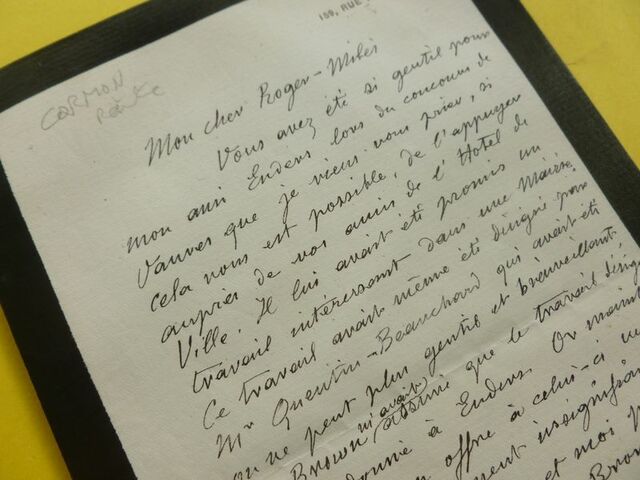 159, RUE
CORMON
Mon cher Roger-Milès
Vous avez été si gentil pour
mon ami Enders lors du concours de
Vanves que je viens vous prier, si
cela vous est possible, de l'appuyer
auprès de vos amis de l'Hotel de
Ville. Il lui avait été promis un
travail intéressant dans une Mairie.
Ce travail avait même été désigné par
Mr Quentin-Beauchard qui avait été
on ne peut plus gentil et bienveillant.
Brown m'avait assuré que le travail désig
donné à Enders. Or maint
offre à celui-ci un
insignifian
et moi p
Bro